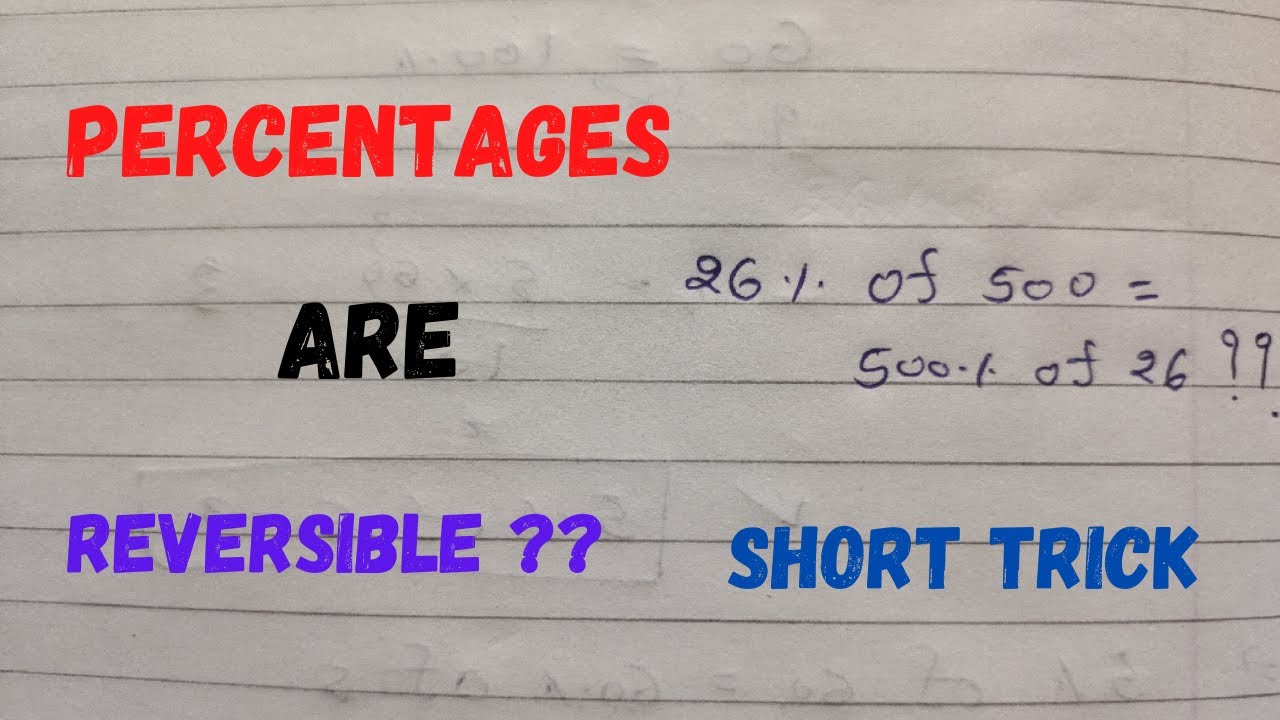 PERCENTAGES
ARE
REVERSIBLE ??
26% of 500 =
500% of 26 ??
SHORT TRICK